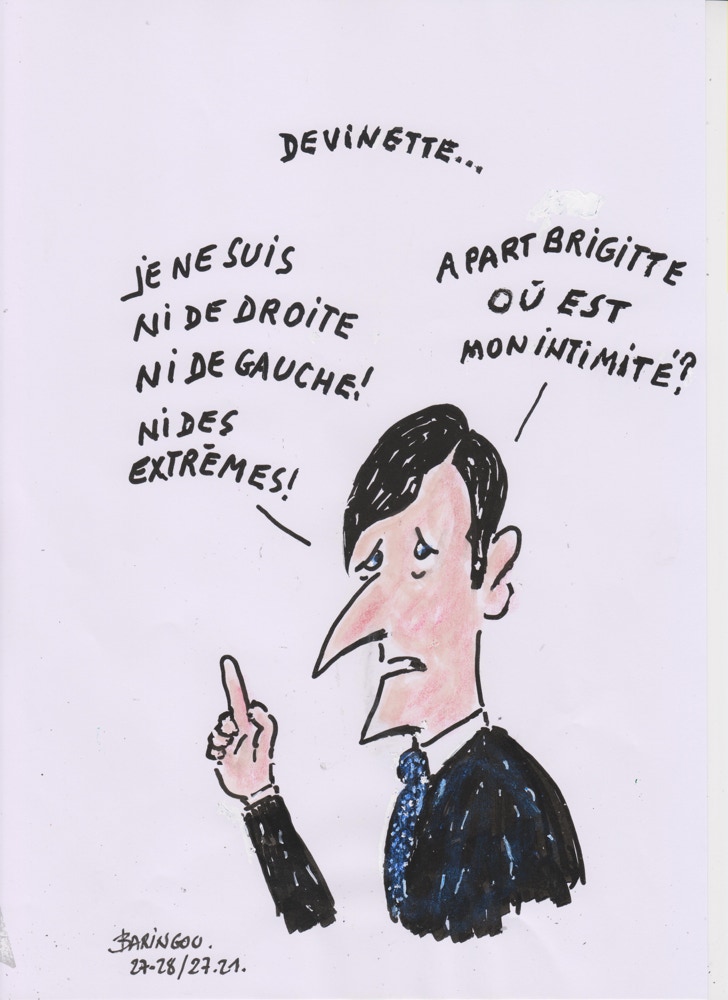 DEVINETTE...
JE NE SUIS
NI DE DROITE
NI DE GAUCHE!
NI DES
EXTRÊMES!
A PART BRIGITTE
OÙ EST
MON INTIMITÉ?
BARINGOU.
27-28/27.21.